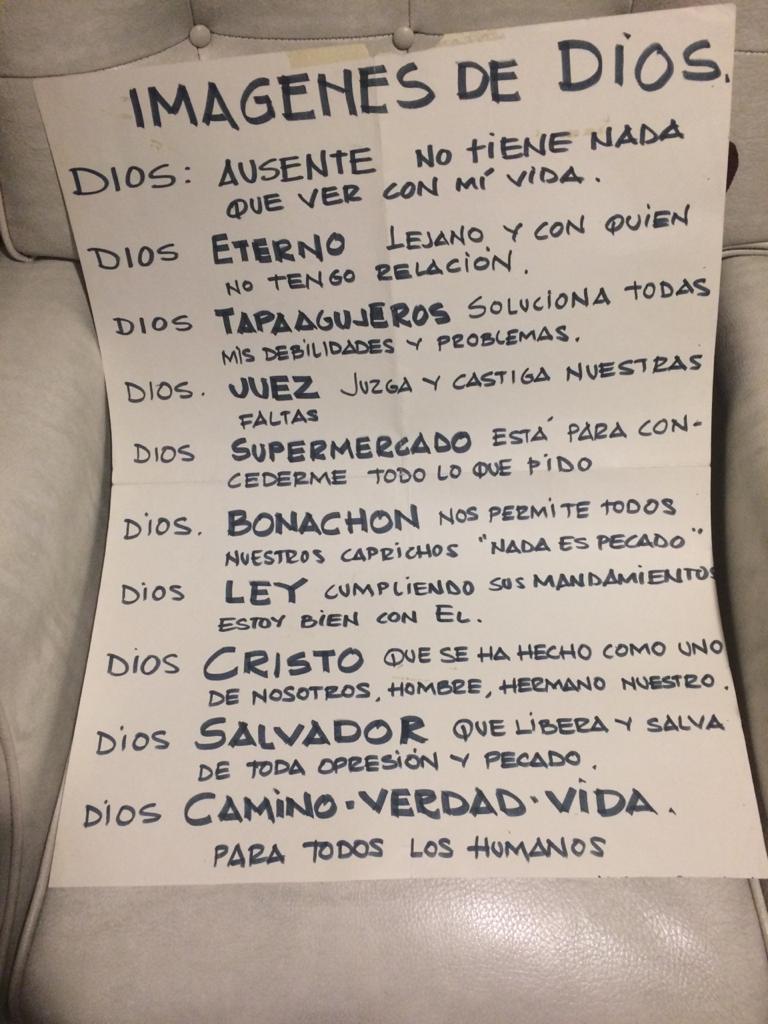 IMAGENES DE DIOS.
DIOS: AUSENTE NO TIENE NADA
QUE VER CON MÍ VIDA.
DIOS ETERNO LEJANO Y CON QUIEN
NO TENGO RELACIÓN.
DIOS TAPAAGUJEROS SOLUCIONA TODAS
MIS DEBILIDADES Y PROBLEMAS.
DIOS. JUEZ JUZGA Y CASTIGA NUESTRAS
FALTAS
DIOS SUPERMERCADO ESTÁ PARA CON-
CEDERME TODO LO QUE PIDO
DIOS. BONACHON NOS PERMITE TODOS
NUESTROS CAPRICHOS "NADA ES PECADO"
DIOS LEY CUMPLIENDO SUS MANDAMIENTOS
ESTOY BIEN CON EL.
DIOS CRISTO QUE SE HA HECHO COMO UNO
DE NOSOTROS, HOMBRE, HERMANO NUESTRO.
DIOS SALVADOR QUE LIBERA Y SALVA
DE TODA OPRESIÓN Y PECADO.
DIOS CAMINO·VERDAD·VIDA.
PARA TODOS LOS HUMANOS